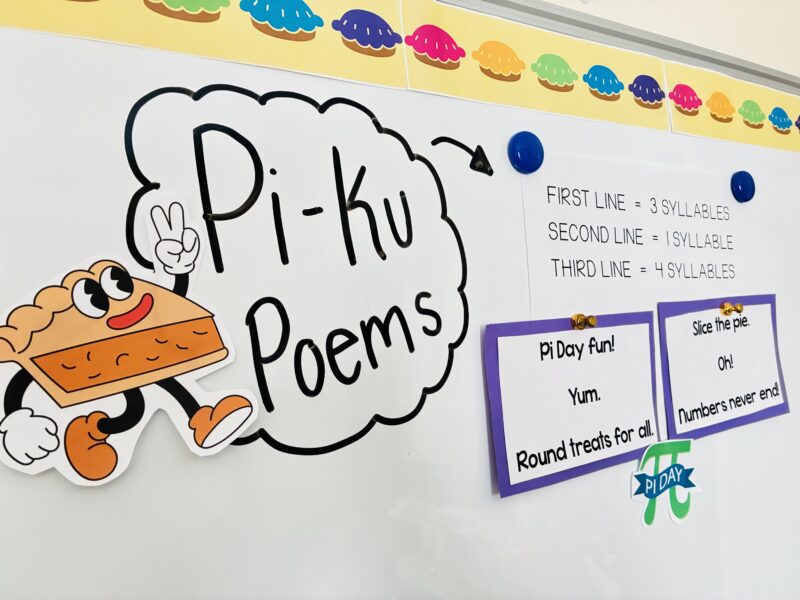 Pi-Ku
Poems
FIRST LINE = 3 SYLLABLES
SECOND LINE = 1 SYLLABLE
THIRD LINE = 4 SYLLABLES
Pi Day fun!
Yum.
Round treats for all.
Slice the pie.
Oh!
Numbers never end!
PI DAY
π